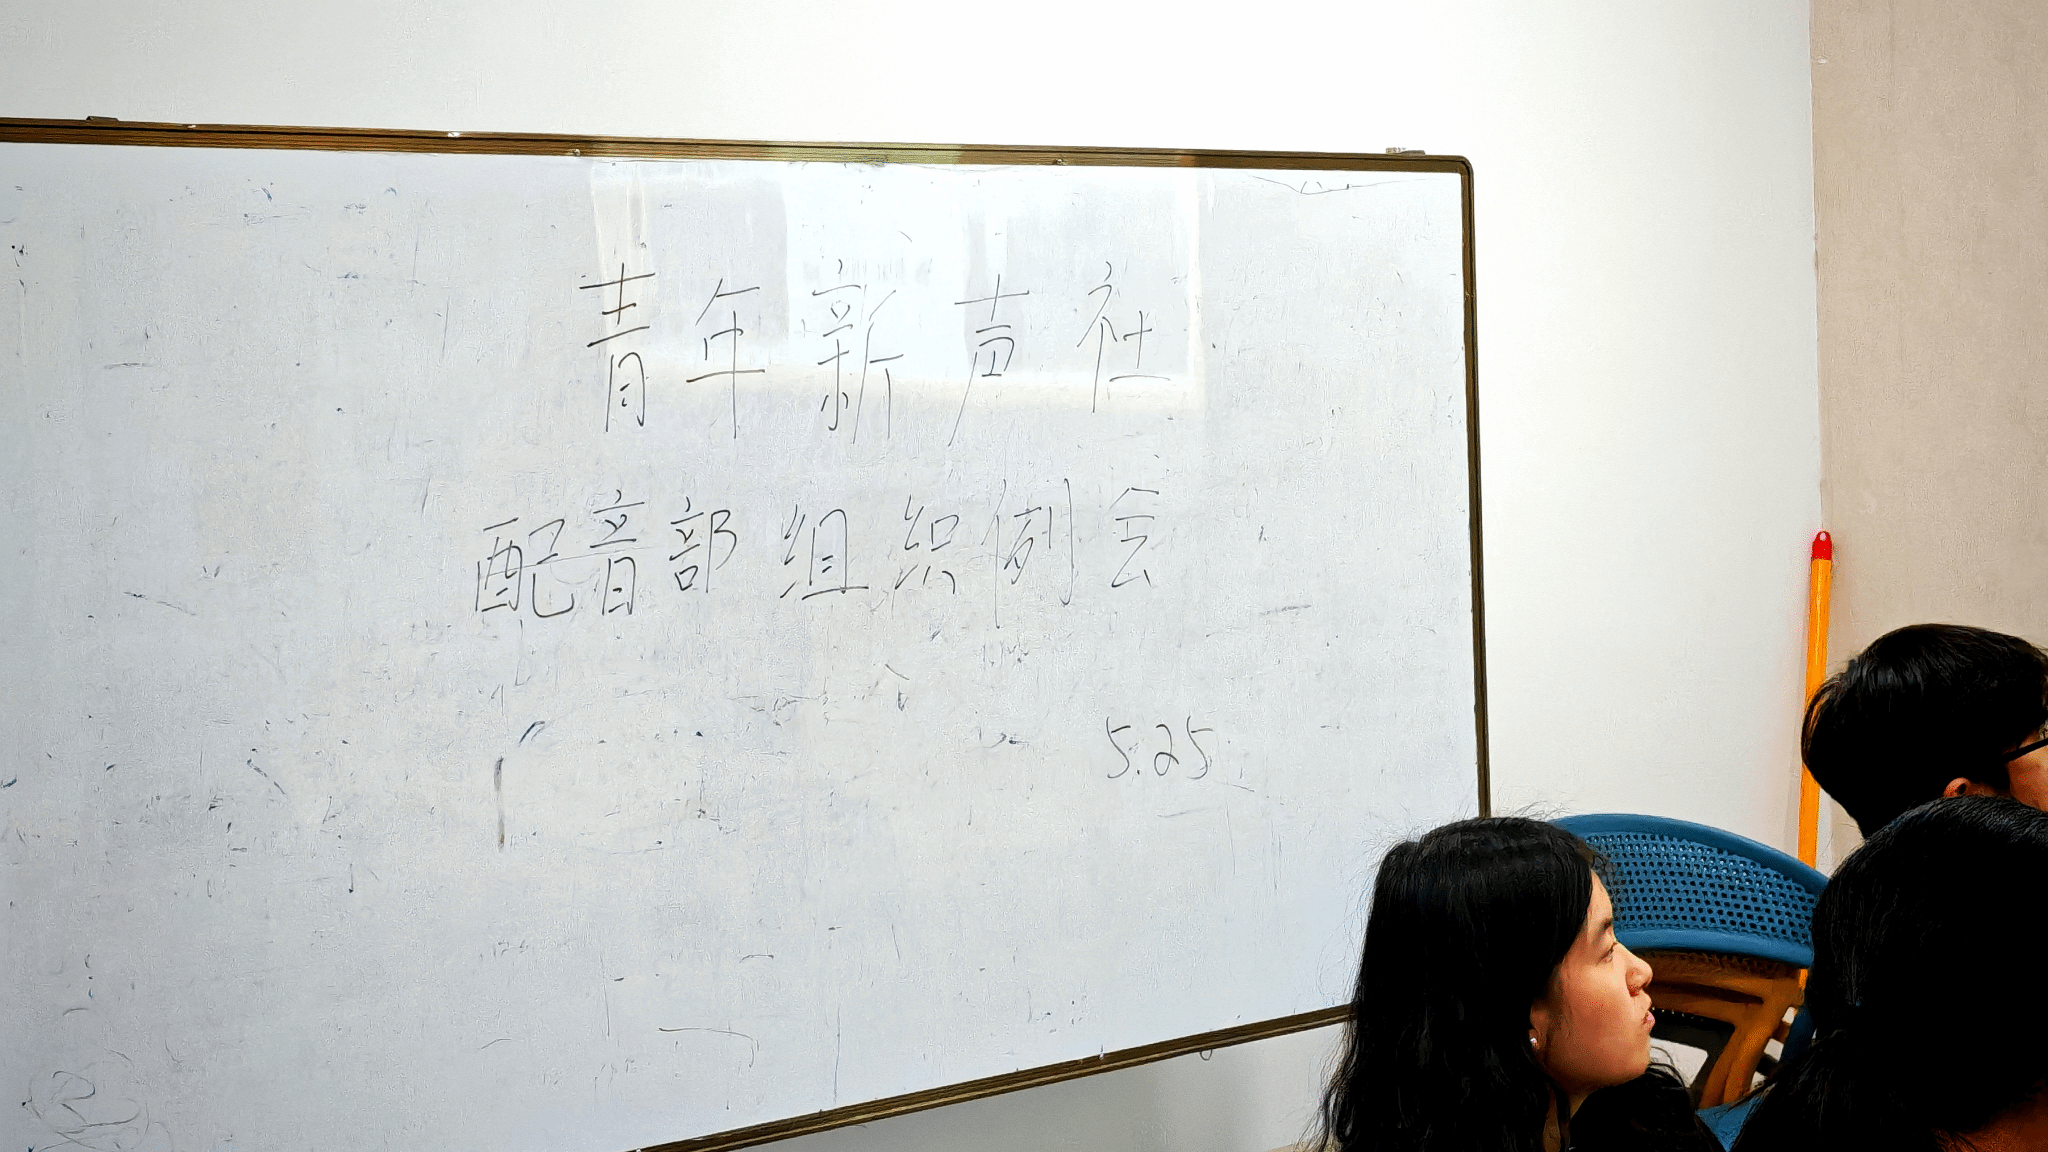 青年新声社
配音部组织例会
5.25